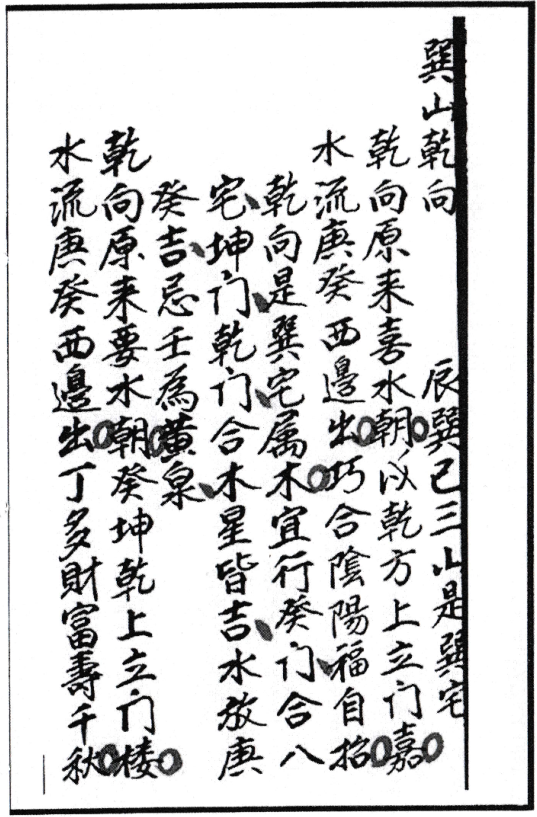 巽山乾向　辰巽巳三山是巽宅
乾向原来喜水朝以乾方上立门嘉
水流庚癸西邊出巧合陰陽福自招
乾向是巽宅属木宜行癸门合八
宅坤门乾门合木星皆吉水放庚
癸吉忌壬為黄泉
乾向原来要水朝癸坤乾上立门楼
水流庚癸西邊出丁多財富壽千秋